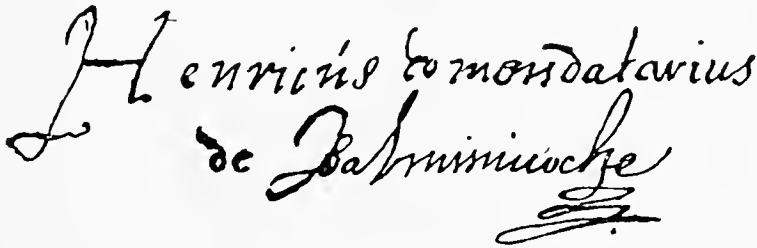 Henricus comondatarius
de Balmirinocke